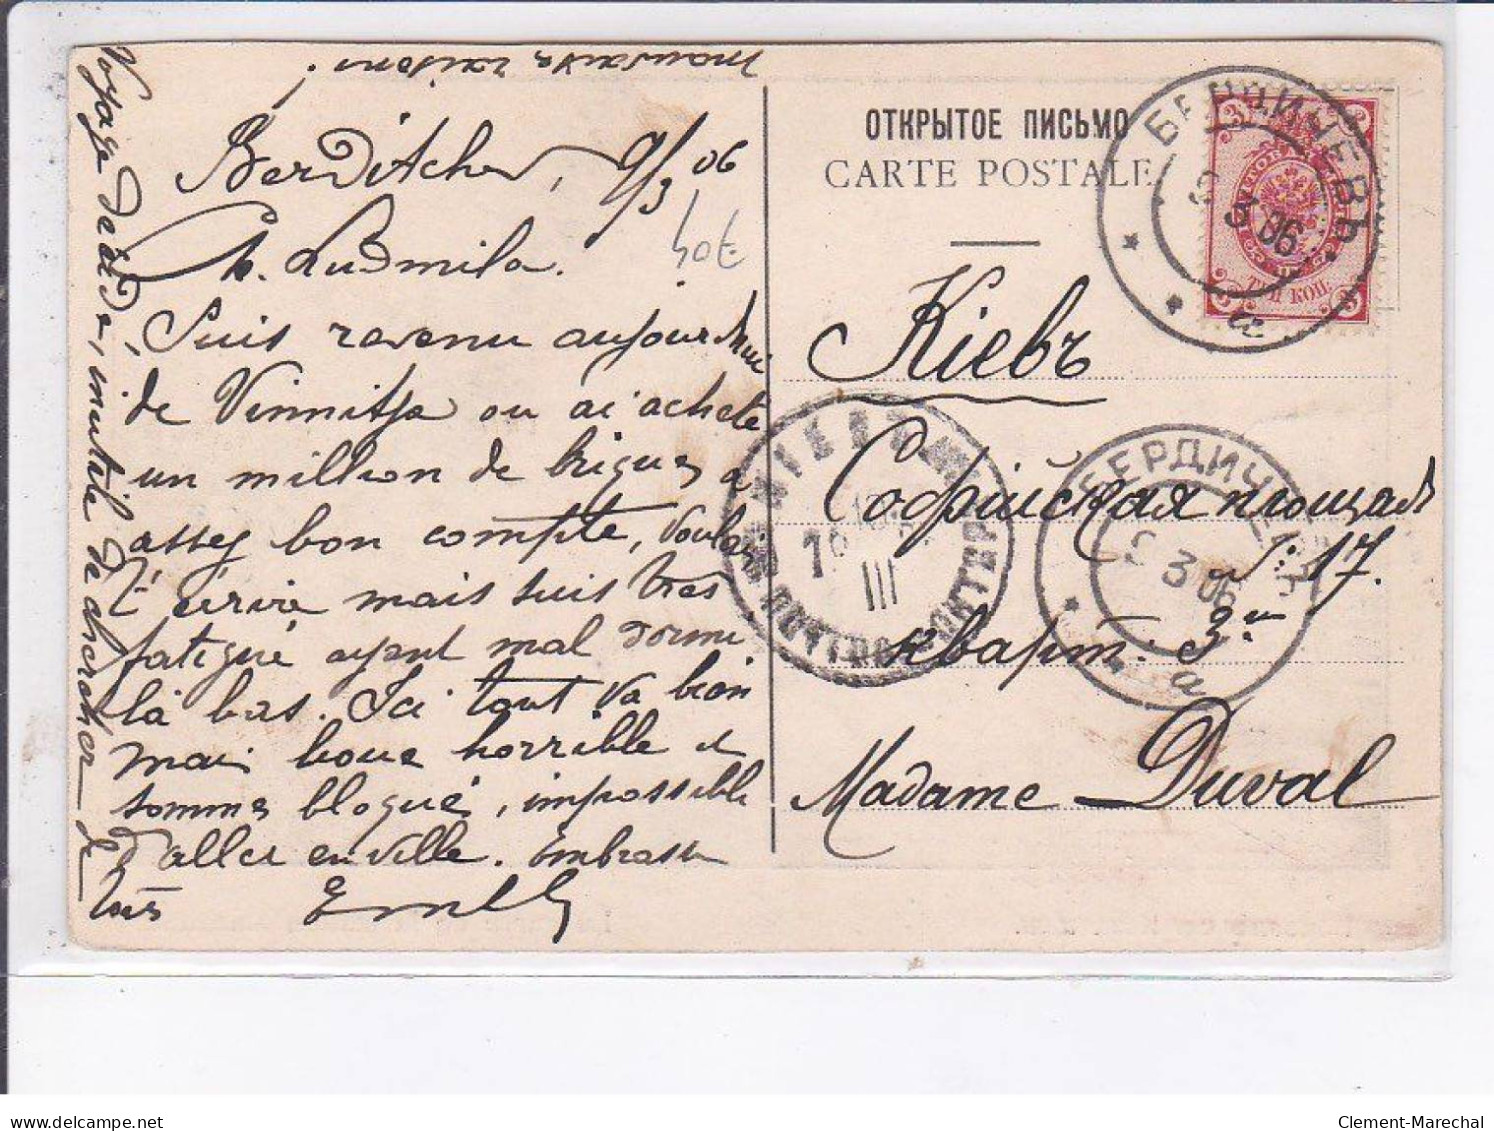 Berditchev, 9/3 06
Ch. Ludmila.
Suis revenu aujourd'hui
de Vinnitza ou ai acheté
un million de briques a
assez bon compte, voulais
t'écrire mais suis très
fatigué ayant mal dormi
là bas. Ici tout va bien
mais boue horrible et
sommes bloqués, impossible
d'aller en ville. Embrasse
Voyage de, inutile de chercher de
mauvaises raisons!
ОТКРЫТОЕ ПИСЬМО
CARTE POSTALE
БЕРДИЧЕВЪ
3 06
а
ТРИ КОП.
Кіевъ
Софійская площадь
д: 17.
кварт. 3
Madame Duval
БЕРДИЧЕВЪ
3 06
а
III
delcampe.net
Clement-Marechal